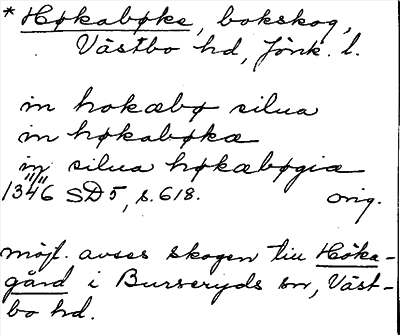 * Høkabøke, bokskog,
Västbo hd, Jönk. l.
in hokæbø silua
in høkabøkæ
in silua høkæbøgiæ
11/11
1346 SD5, s. 618. orig.
möjl. avses skogen till Höka-
gård i Burseryds sn, Väst-
bo hd.